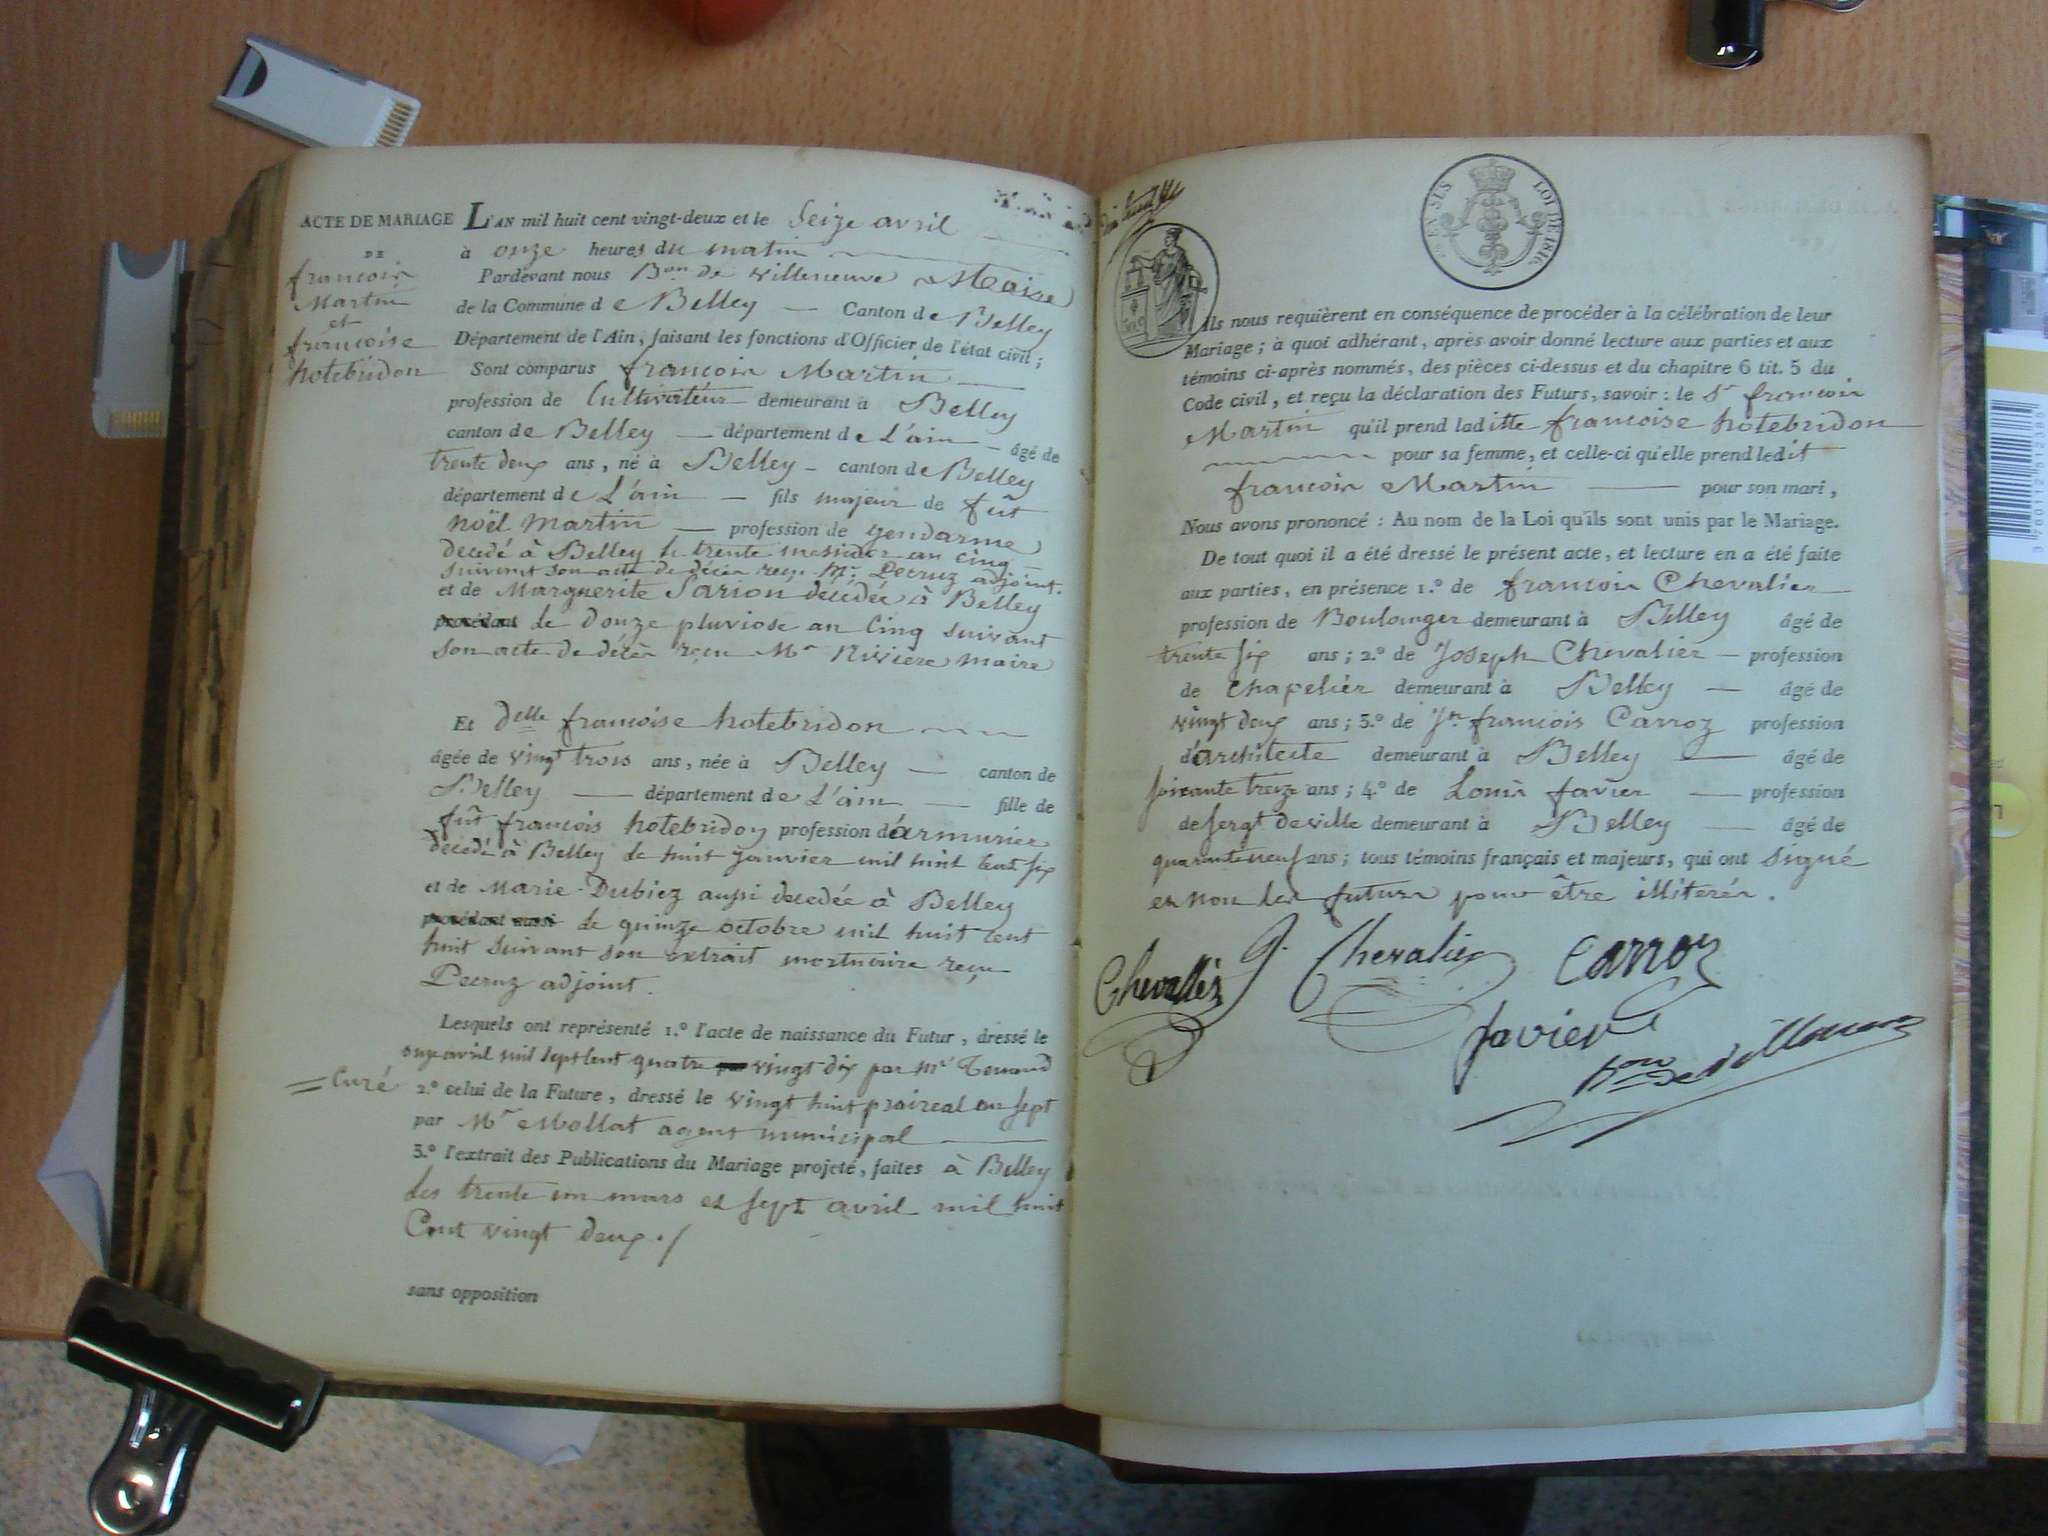 ACTE DE MARIAGE
DE
françois
Martin
et
françoise
hotebridon
L'AN mil huit cent vingt-deux et le Seize avril
à onze heures du matin
Pardevant nous Bon de Villeneuve Maire
de la Commune de Belley — Canton de Belley
Département de l'Ain, faisant les fonctions d'Officier de l'état civil;
Sont comparus françois Martin
profession de Cultivateur demeurant à Belley
canton de Belley — département de L'ain — âgé de
trente deux ans, né à Belley - canton de Belley
département de L'ain — fils majeur de fût
Noël Martin — profession de gendarme
decedé à Belley le trente messidor an cinq
suivant son acte de décès reçu Mr. Decruz adjoint.
et de Marguerite Sarion décédée à Belley
procédant le Douze pluviose an Cinq suivant
son acte de décès reçu Mr Rivière maire
Et Delle françoise hotebridon
âgée de vingt trois ans, née à Belley — canton de
Belley — département de L'ain — fille de
fût françois hotebridon profession d'armurier
decedé à Belley le huit janvier mil huit cent six
et de Marie Dubiez aussi decedée à Belley
procédant aussi le quinze octobre mil huit cent
huit suivant son extrait mortuaire reçu
Decruz adjoint.
Lesquels ont représenté 1.° l'acte de naissance du Futur, dressé le
onze avril mil sept cent quatre vingt dix par Mr
= Curé
2.° celui de la Future, dressé le vingt huit prairéal an sept
par Mr Mollat agent municipal
3.° l'extrait des Publications du Mariage projeté, faites à Belley
les trente un mars et sept avril mil huit
Cent vingt deux ./
sans opposition
EN SUS
LOI DE 1816.
Ils nous requièrent en conséquence de procéder à la célébration de leur
Mariage; à quoi adhérant, après avoir donné lecture aux parties et aux
témoins ci-après nommés, des pièces ci-dessus et du chapitre 6 tit. 5 du
Code civil, et reçu la déclaration des Futurs, savoir: le Sr françois
Martin qu'il prend laditte françoise hotebridon
pour sa femme, et celle-ci qu'elle prend ledit
françois Martin — pour son mari,
Nous avons prononcé: Au nom de la Loi qu'ils sont unis par le Mariage.
De tout quoi il a été dressé le présent acte, et lecture en a été faite
aux parties, en présence 1.° de françois Chevalier
profession de Boulanger demeurant à Belley âgé de
trente six ans; 2.° de Joseph Chevalier — profession
de Chapelier demeurant à Belley — âgé de
vingt deux ans; 3.° de Jn françois Carroz profession
d'architecte demeurant à Belley — âgé de
soixante treize ans; 4.° de Louis favier — profession
de sergt de ville demeurant à Belley — âgé de
quarante neuf ans; tous témoins français et majeurs, qui ont signé
et non les futurs pour être illiterés.
Chevallier J. Chevalier Carroz
favier
Bon de Villeneuve